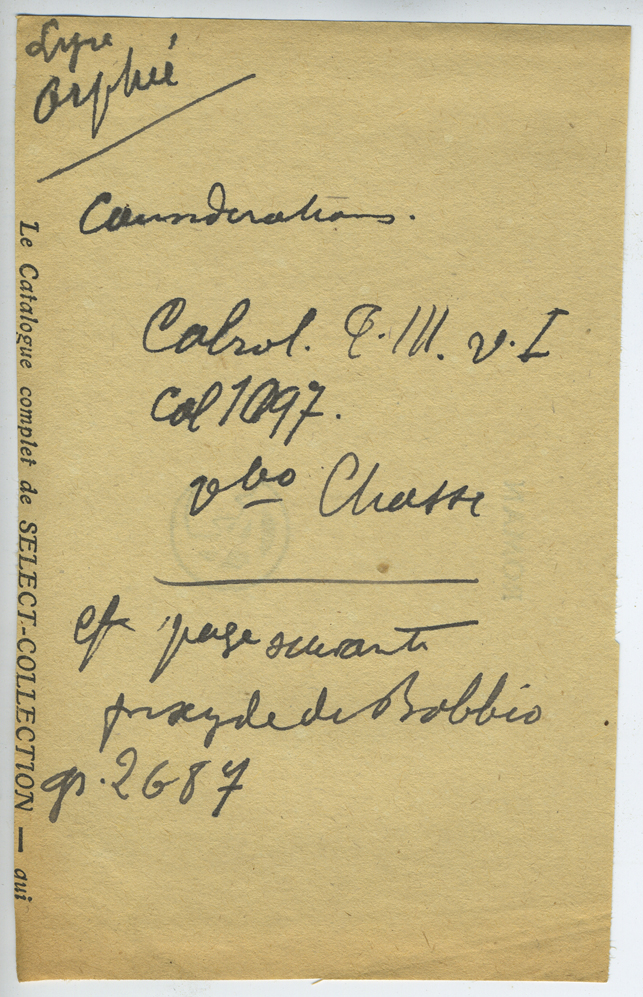 Lyre
Orphée
Considerations.
Cabrol. T. III. v. I
Col 1097.
vbo Chasse
cfr page suivante
pyxyde de Bobbio
gr. 2687
Le Catalogue complet de SELECT-COLLECTION — qui